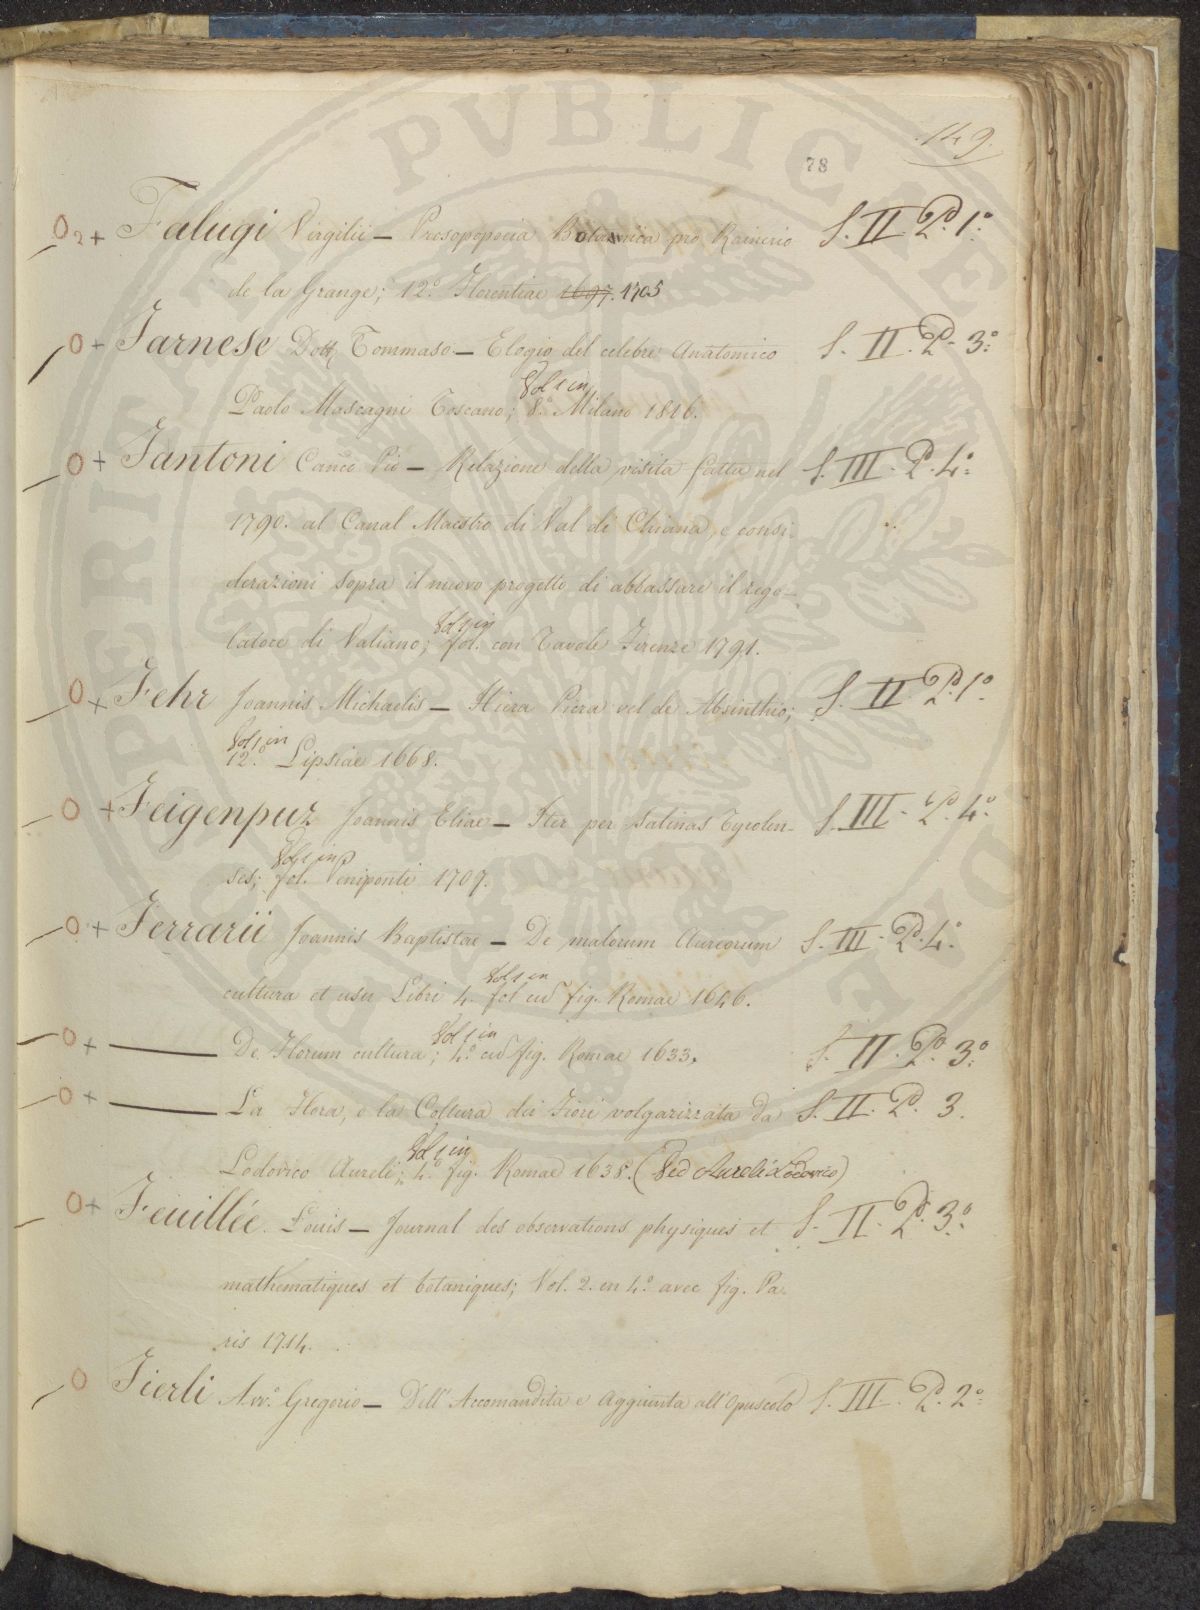 149.
78
O 2 + Falugi Virgilii — Prosopopoeia Botanica pro Rainerio S. II. Pd. 1°
de la Grange; 12.° Florentiae 1697. 1705
O + Farnese Dott. Tommaso — Elogio del celebre Anatomico S. II. Pd. 3°:
Vol 1 in
Paolo Mascagni Toscano; 8.° Milano 1816.
O + Fantoni Canco Pio — Relazione della visita fatta nel S. III. Pd. 4°:
1790. al Canal Maestro di Val di Chiana, e consi-
derazioni sopra il nuovo progetto di abbassare il rego-
Vol 1 in
latore di Valiano; fol. con Tavole Firenze 1791.
O + Fehr Joannis Michaelis — Hiera Picra vel de Absinthio; S. II. Pd. 1°
Vol 1 in
12.° Lipsiae 1668.
O + Feigenpuz Joannis Eliae — Iter per Salinas Tyrolen- S. III. Pd. 4°
Vol 1 in
ses; fol. Oeniponti 1709.
O + Ferrarii Joannis Baptistae — De malorum Aureorum S. III. Pd. 4°
Vol 1 in
cultura et usu Libri 4. fol cu fig. Romae 1646.
Vol 1 in
O + —— De Florum cultura; 4.° cu fig. Romae 1633. S. II. Pd. 3°:
O + —— La Flora, o la Coltura dei Fiori volgarizzata da S. II. Pd. 3.
Vol 1 in
Lodovico Aureli; 4.° fig. Romae 1638. (Ved Aureli Lodovico)
O + Feuillée Louis — Journal des observations physiques et S. II. Pd. 3°:
mathematiques et botaniques; Vol. 2. en 4.° avec fig. Pa-
ris 1714.
O Fierli Avv.° Gregorio — Dell' Accomandita e Aggiunta all' Opuscolo S. III. Pd. 2°: